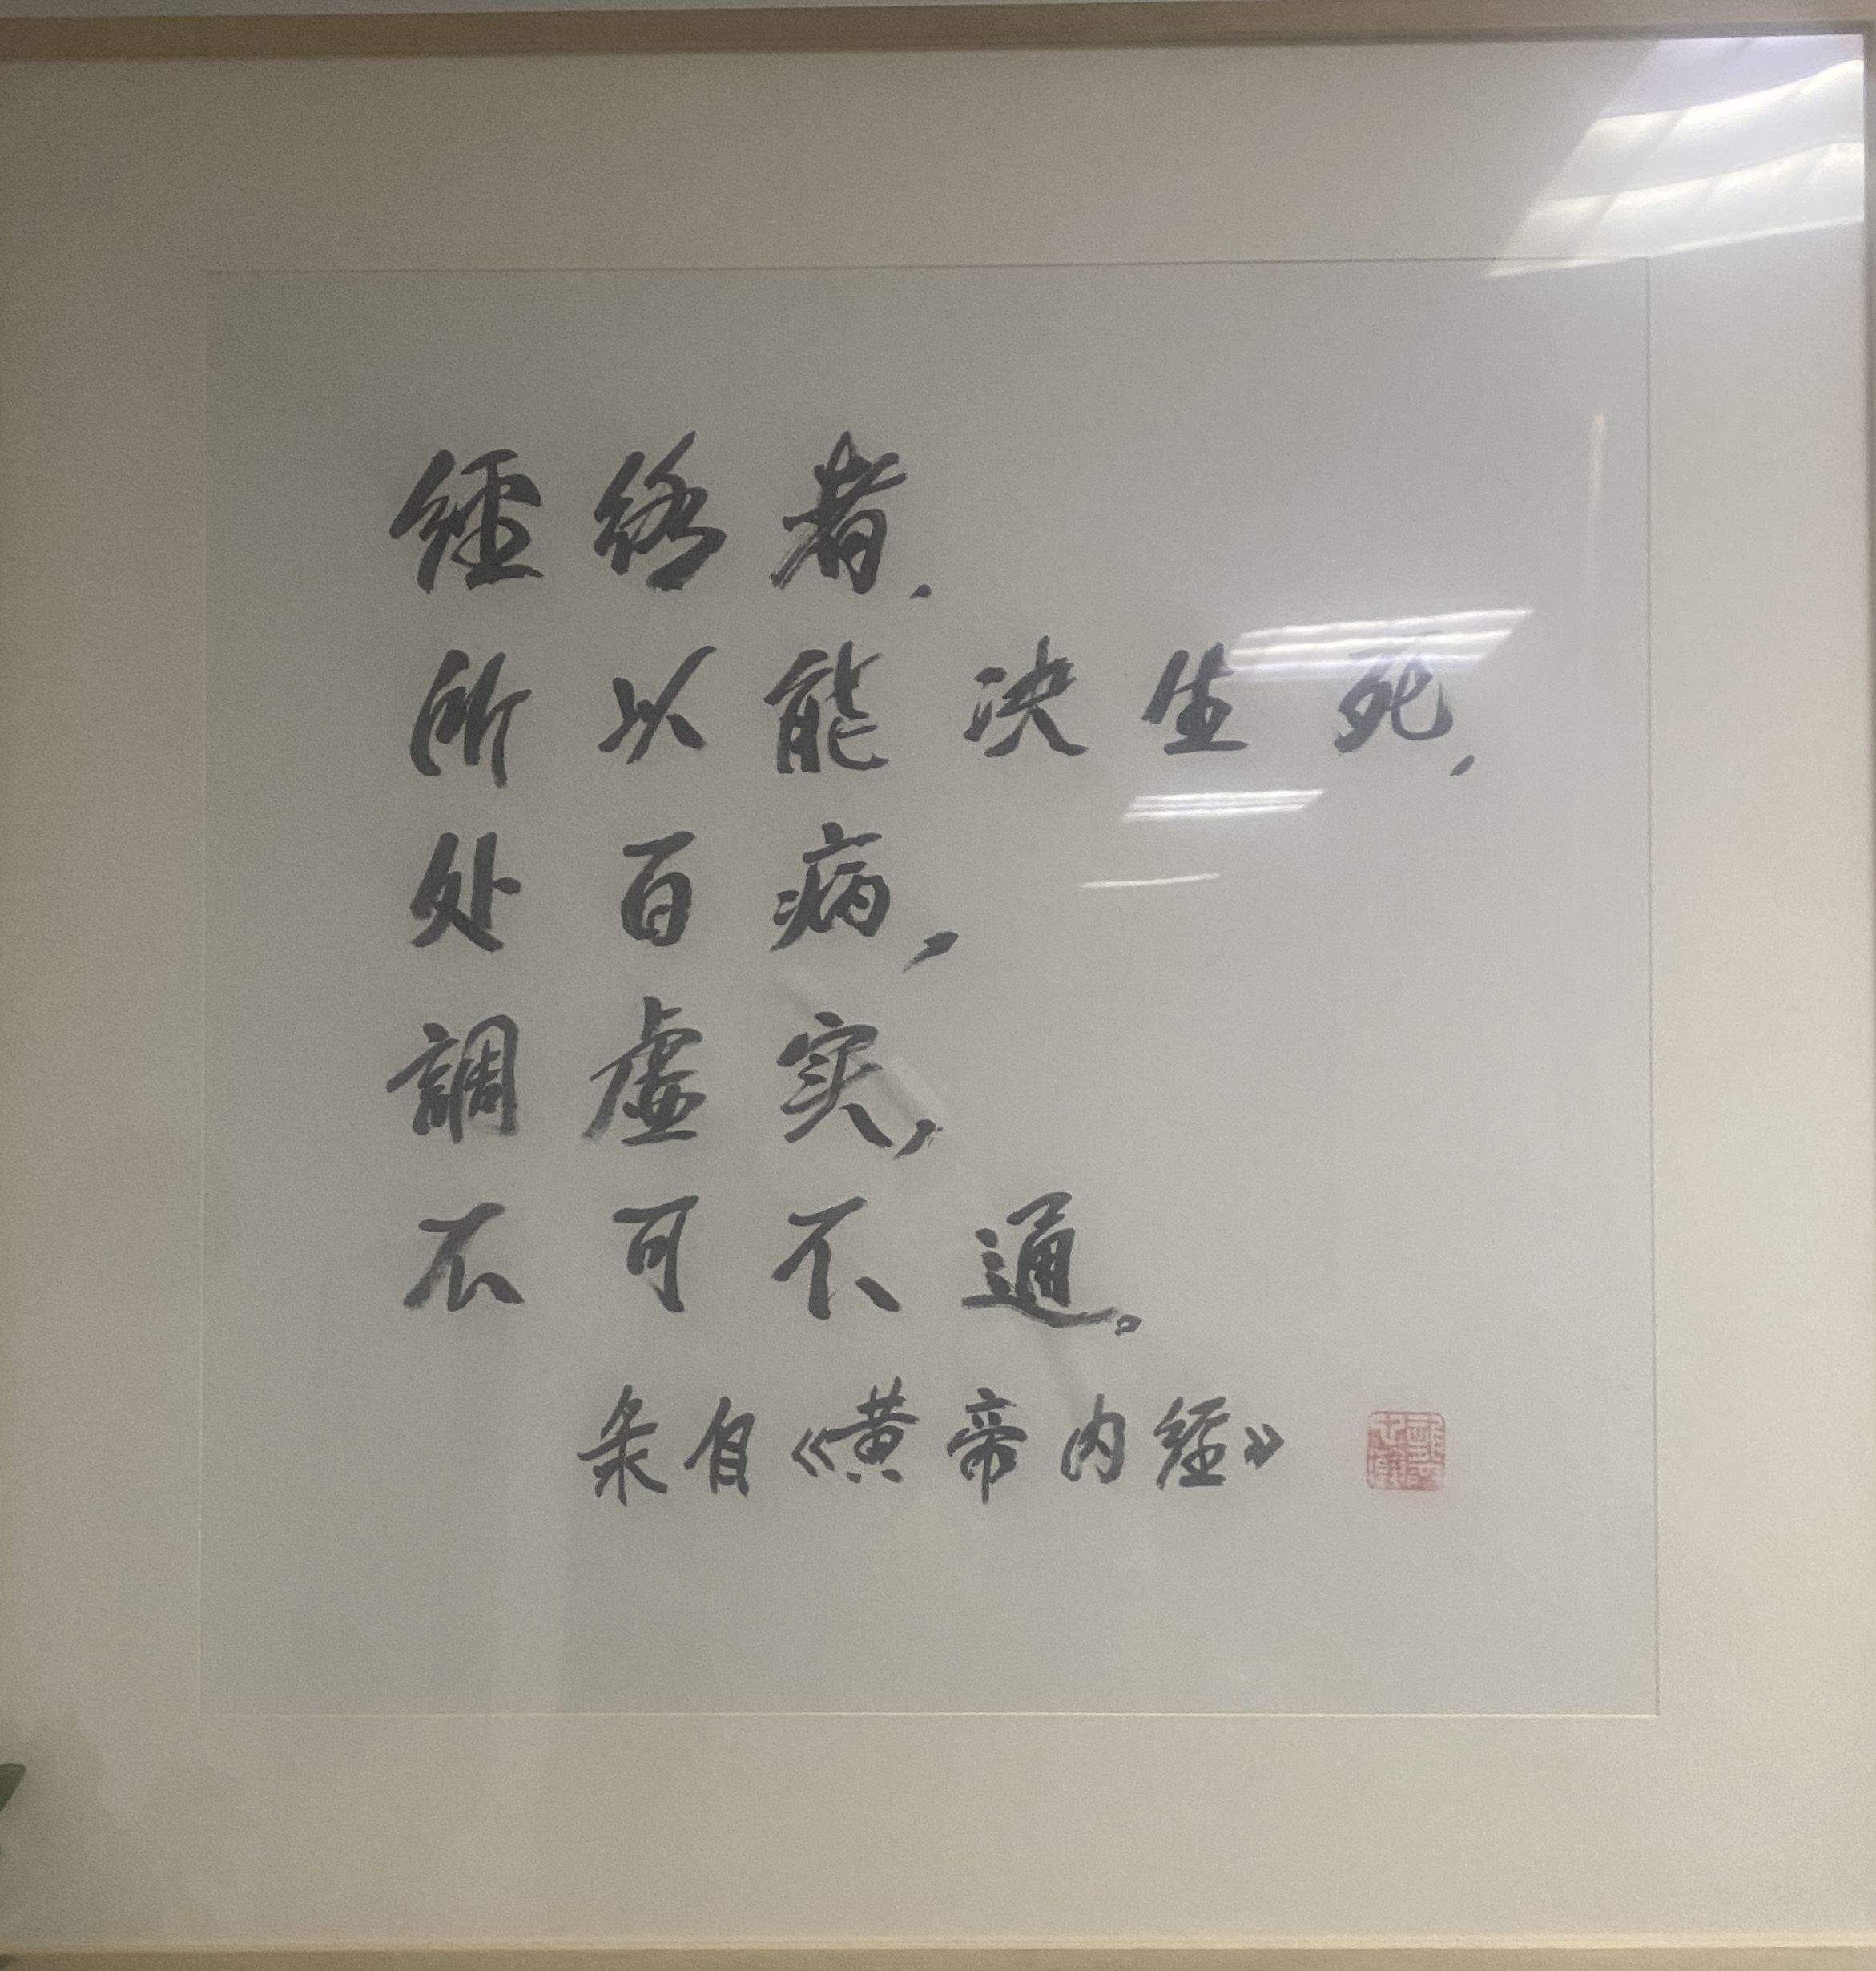 經络者,
所以能决生死,
处百病,
調虚实,
不可不通。
采自《黄帝内经》